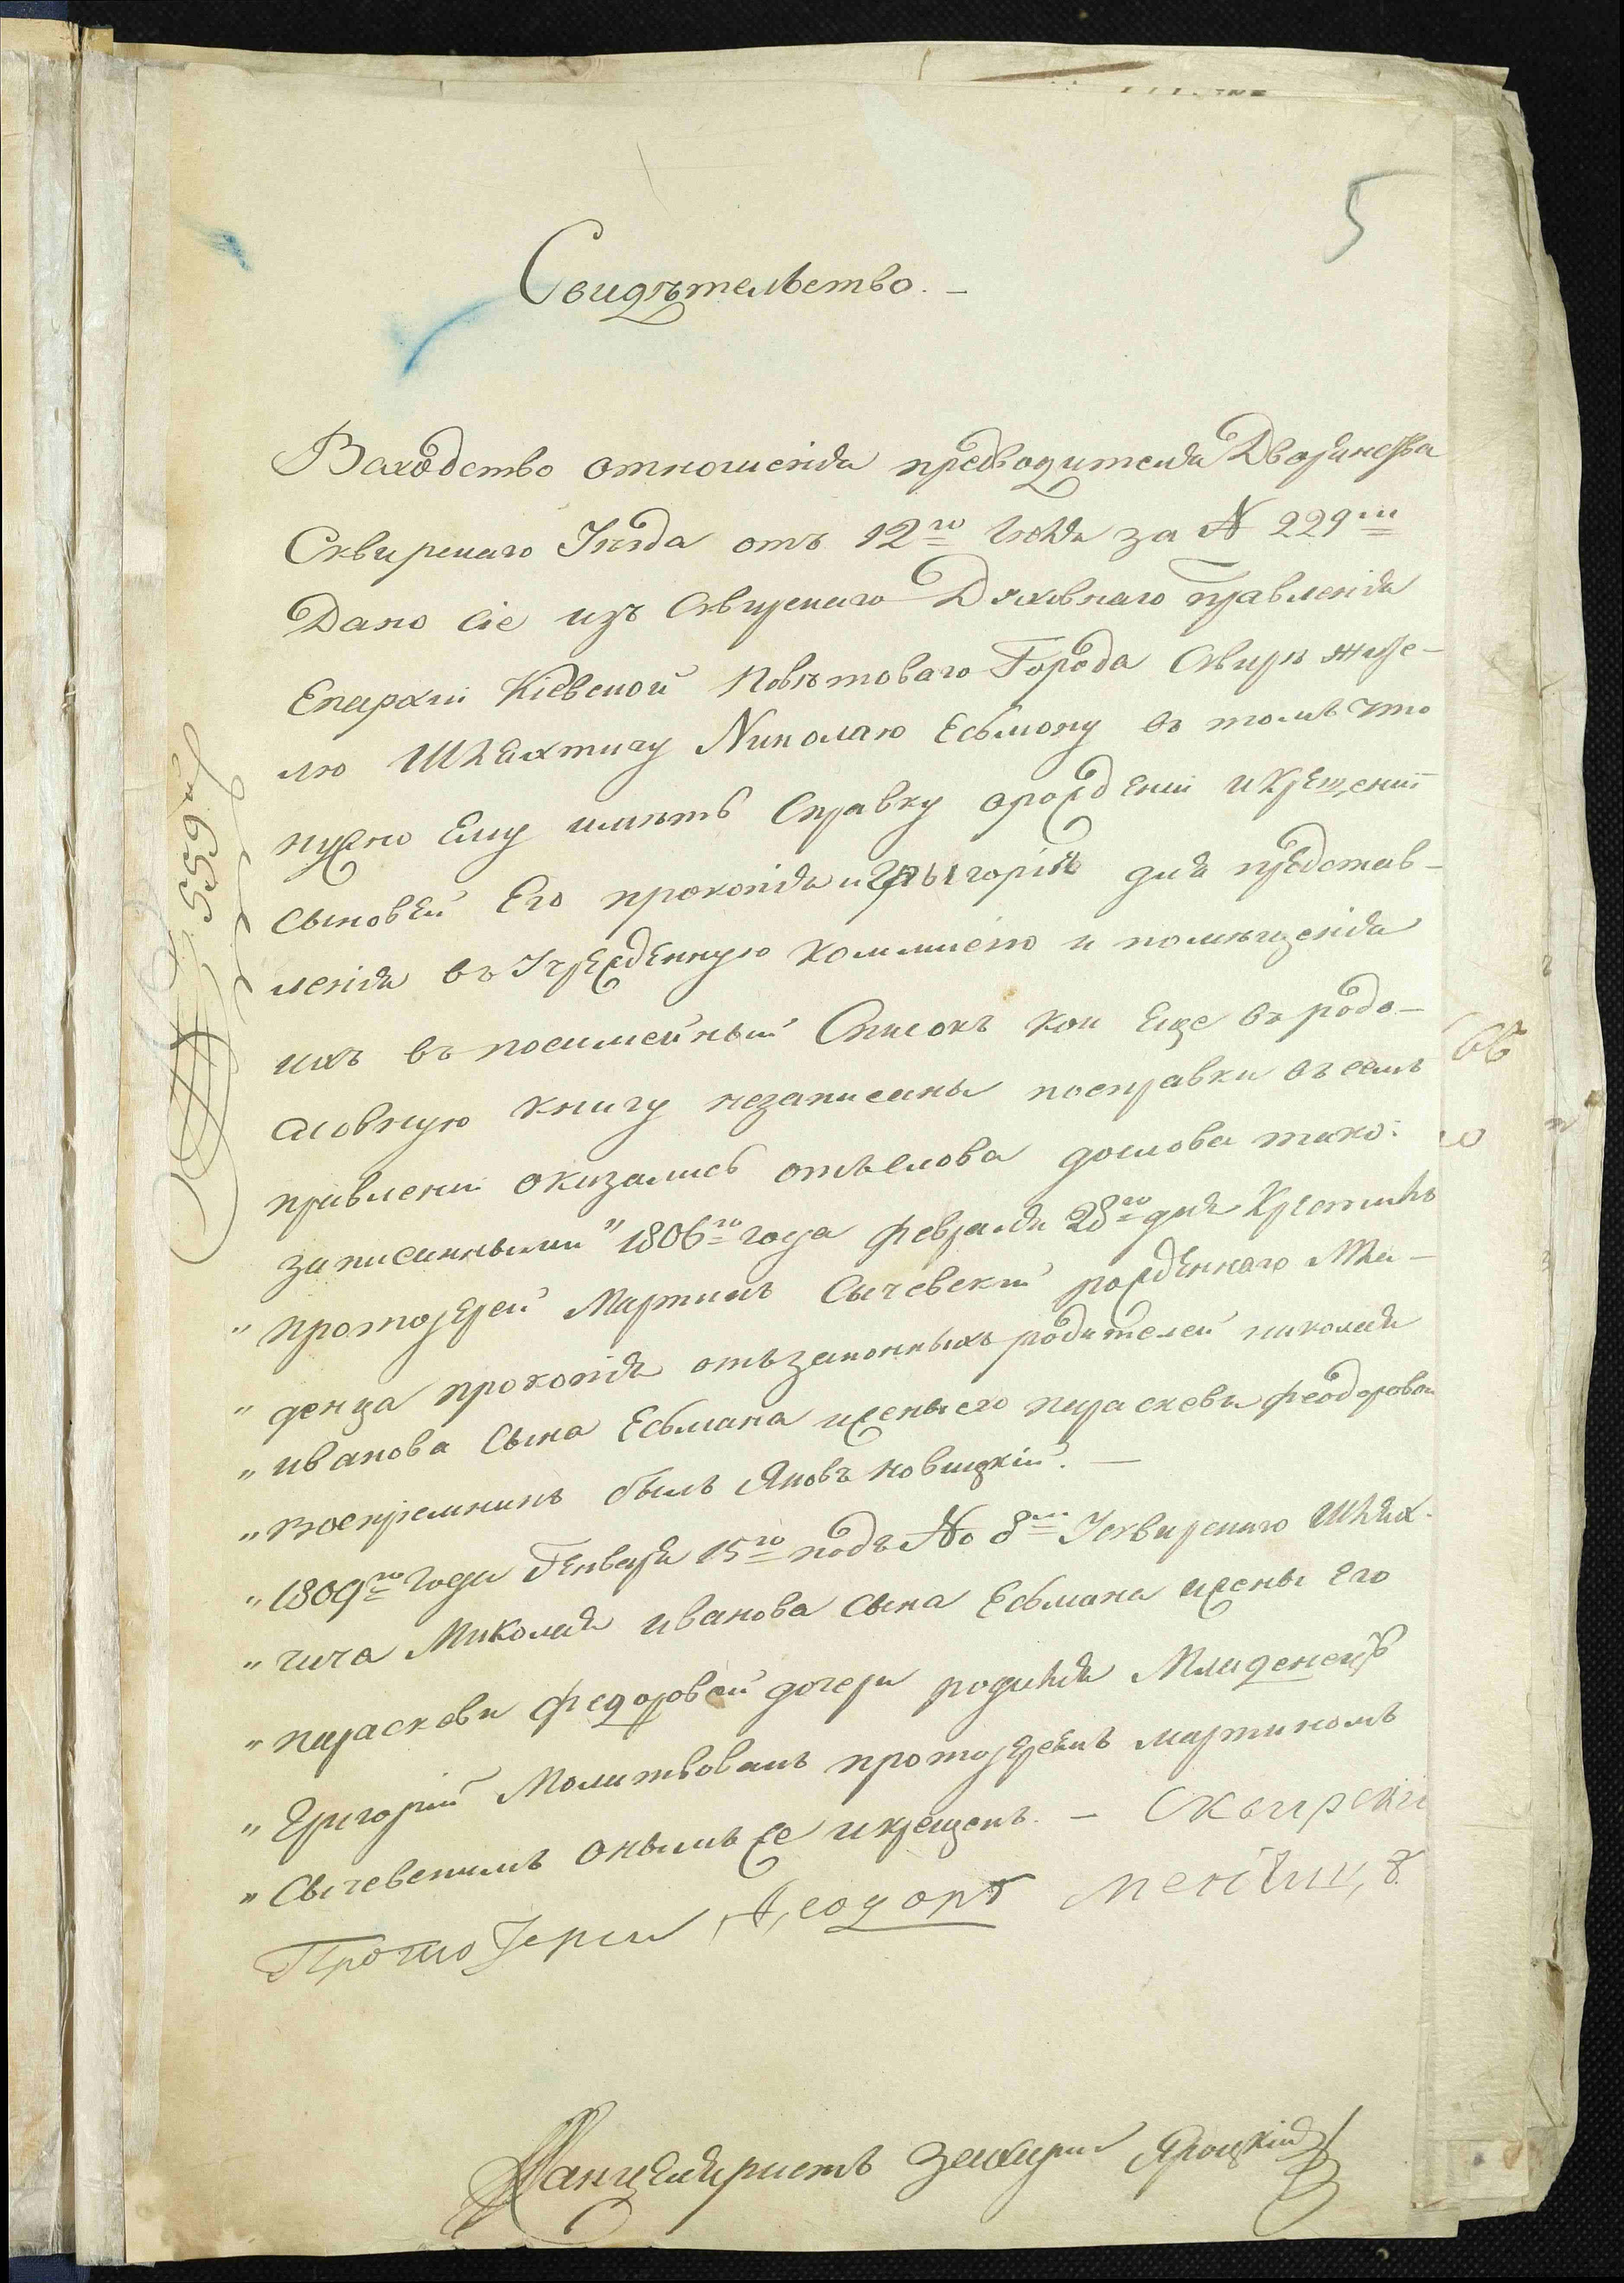 5
Свидѣтельство. –
Вслѣдство отношенія предводителя Дворянства
Сквирскаго Уѣзда отъ 12го Іюля за № 229м
Дано сіе изъ Сквирскаго Духовнаго правленія
Епархіи Кіевской Повѣтоваго Города Сквиры жите-
лю Шляхтичу Николаю Есьмону въ томъ что
нужно Ему имѣть Справку орожденіи икрещеніи
сыновей Его прокопія и Григорія для представ-
ленія въ Учрежденную Коммисію и помѣщенія
ихъ въ посимейный Списокъ кои Еще въ родо-
словную книгу незаписаны посправки въ семъ
правленіи оказались отъслова дослова тако:
записанными "1806го года февраля 28го дня Крестилъ
" протоіерей Мартинъ Сычевскій рожденнаго Мла-
" денца прокопія отъзаконныхъ родителей николая
" иванова Сына Есьмана ижены его параскеви феодоровой
" Воспремникъ былъ Яковъ новицкій. –
" 1809го Года Генваря 15го подъ No 8м Усквирскаго Шлях-
" тича Миколая иванова сына Есьмана ижены Его
" параскеви Федоровой дочери родился Младенецъ
" Григорій Молитвованъ протоіереемъ мартиномъ
" Сычевскимъ онымъ же икрещенъ. – Сквирскій
ПротоІерей Ѳеодоръ
Канцеляристъ Захарій Яроцкій
559й